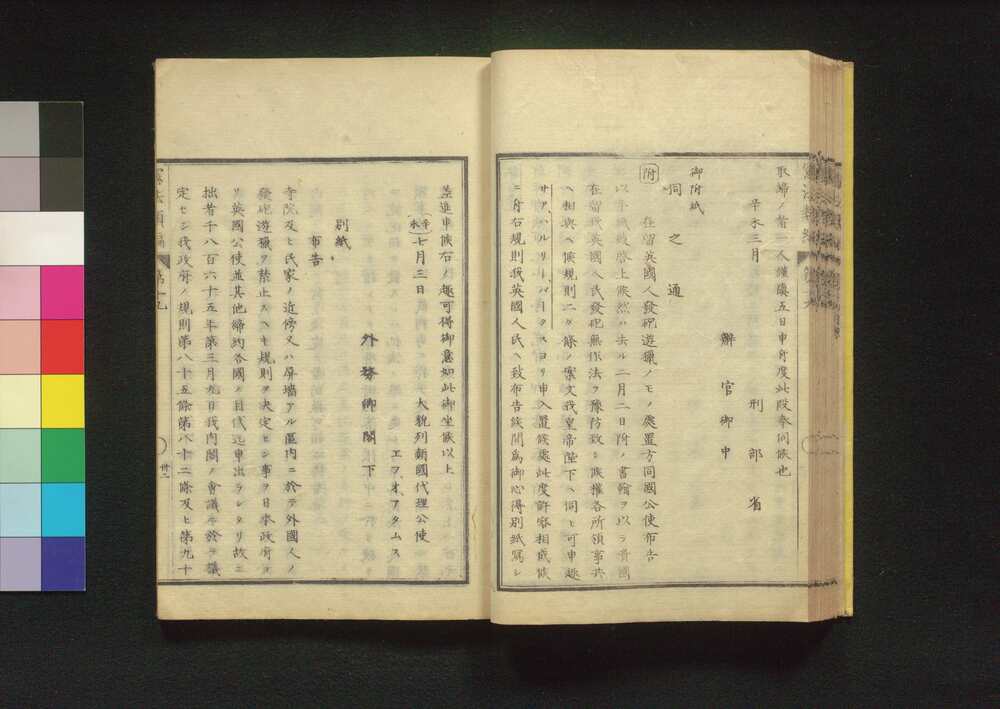 取歸ノ者一人催
五日申付度此段奉伺候也
辛未三月
刑部省
辦官御中
御附紙
伺之通
附 在留英國人發砲遊獵ノモノ處置方同國公使布告
以手紙致啓上候然ハ去ル二月二日附ノ書翰ヲ以テ貴國
在留我英國人民發砲無作法ヲ豫防致シ候權各所領事共
ヘ相與ヘ候規則二ケ條ノ案文我皇帝陛下ヘ伺ヒ可申趣
サア、ハルリー、パークスヨリ申入置候處此度許容相成候
ニ付右規則我英國人民ヘ致布告候間爲御心得別紙寫シ
差進申候右ノ趣可得御意如此御坐候以上
辛未七月三日 大貌列顛國代理公使
エフ、オ、アタムス
外務卿閣下
別紙
布告
寺院及ヒ民家ノ近傍又ハ屏墻アル區内ニ於テ外國人ノ
發砲遊獵ヲ禁止スヘキ規則ヲ決定セシ事ヲ日本政府ヨ
リ英國公使並其他締約各國ノ目代迄申出ラレタリ故ニ
拙者千八百六十五年第三月九日我内閣ノ會議ニ於テ議
定セシ我政府ノ規則第八十五條第八十二條及ヒ第九十
憲法類編 第十九
卅二